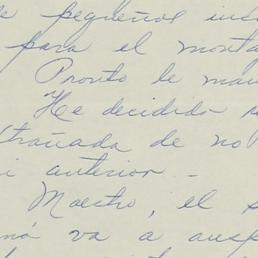 pequeños ins
para el monta
Pronto le man
He decidido
trañada de no
i anterior -
Maestro, el s
má va a ausp